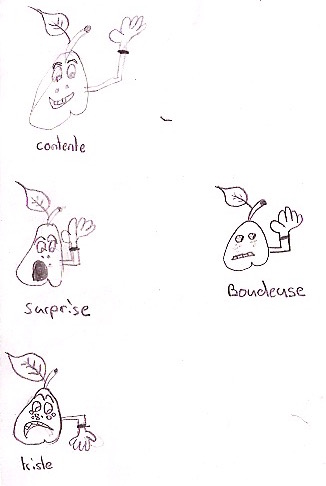 contente
Surprise
Boudeuse
triste